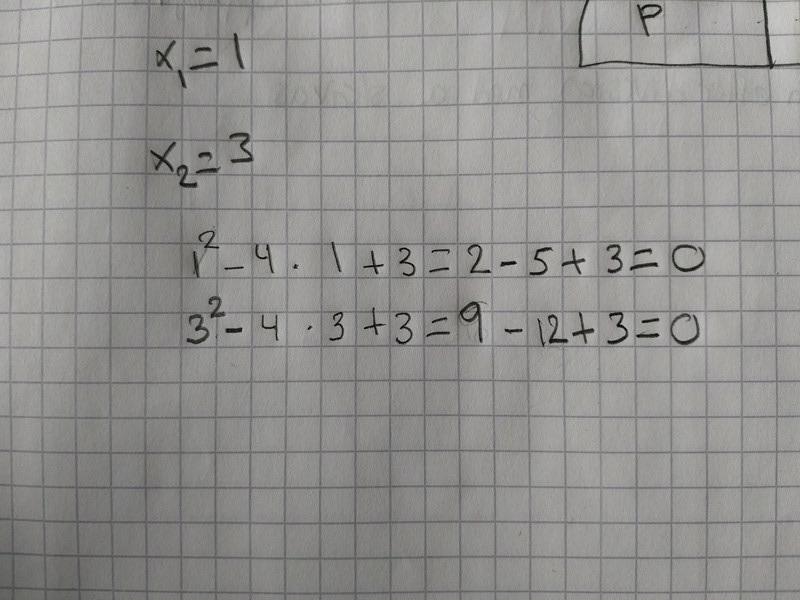 P
x₁ = 1
x₂ = 3
1² - 4 · 1 + 3 = 2 - 5 + 3 = 0
3² - 4 · 3 + 3 = 9 - 12 + 3 = 0